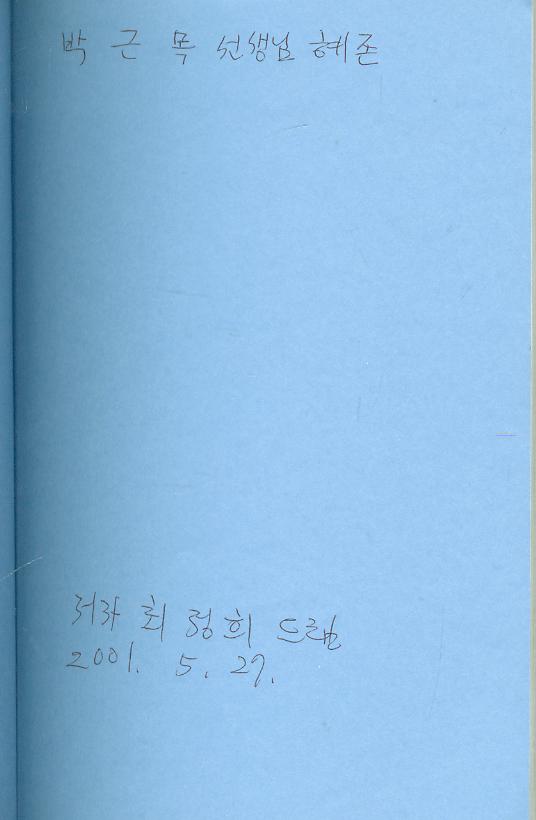 박 근 목 선생님 혜존
저자 최 정 희 드림
2001. 5. 27.